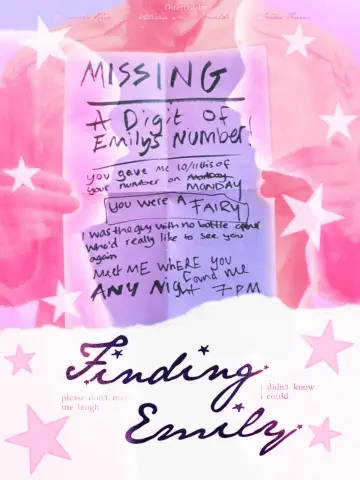 Directed by
MISSING
A Digit of
Emilys Number!
you gave me 10/11ths of
your number on Monday
MONDAY
you were A FAIRY
I was the guy with no bottle
who'd really like to see you
again
Meet ME WHERE YOU
Found me
ANY Night 7PM
Finding
i didn't know
please don't
i could
me laugh
Emily